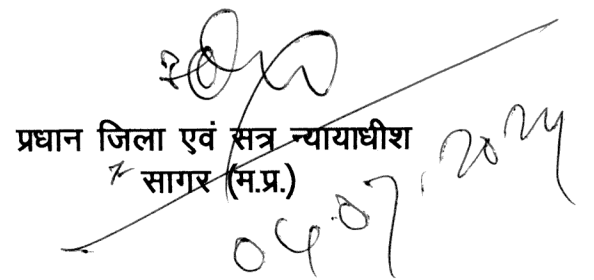 प्रधान जिला एवं सत्र न्यायाधीश
सागर (म.प्र.)
04.07.2024